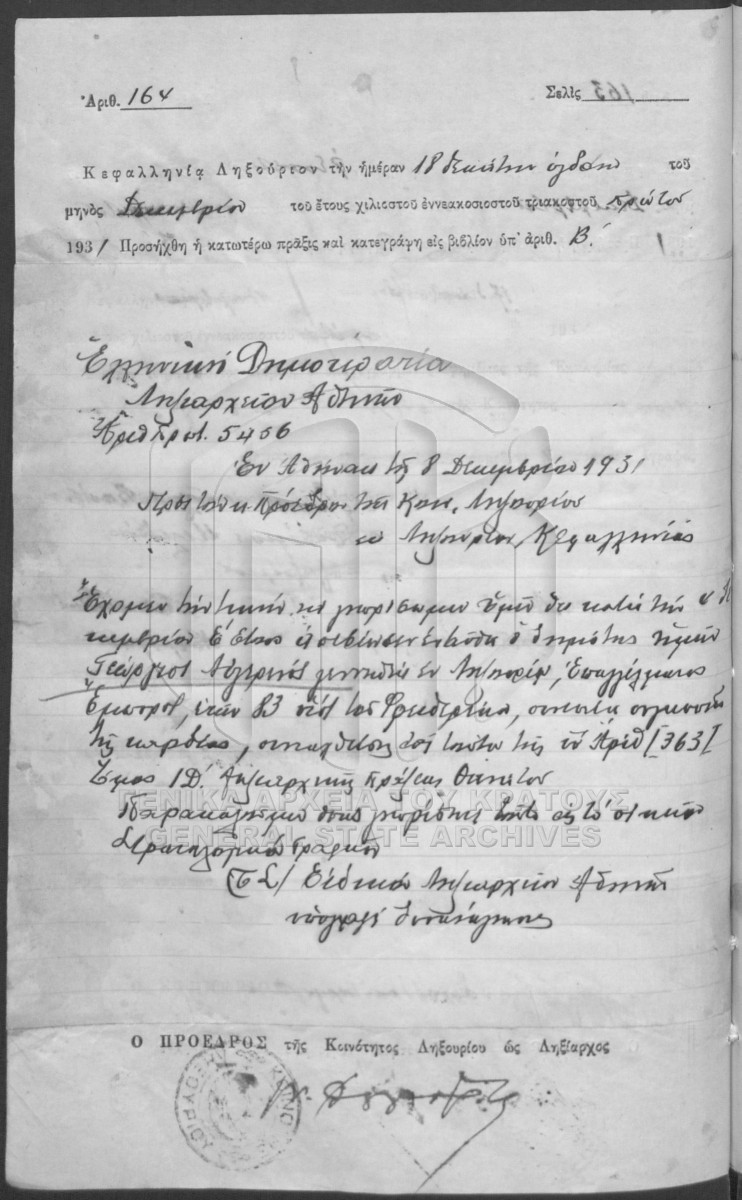 Ἀριθ. 164
Σελὶς 163
Κεφαλληνίᾳ Ληξούριον τὴν ἡμέραν 18 δεκάτην ὀγδόην τοῦ
μηνὸς Δεκεμβρίου τοῦ ἔτους χιλιοστοῦ ἐννεακοσιοστοῦ τριακοστοῦ πρώτου
1931 Προσήχθη ἡ κατωτέρω πρᾶξις καὶ κατεγράφη εἰς βιβλίον ὑπ' ἀριθ. Β.
Ἑλληνική Δημοκρατία
Ληξιαρχεῖον Ἀθηνῶν
Ἀριθ πρωτ. 5456
Ἐν Ἀθήναις τῇ 8 Δεκεμβρίου 1931
Πρὸς τὸν κ. Πρόεδρον τῆς Κοιν. Ληξουρίου
Ληξούριον Κεφαλληνίας
Ἔχομεν τὴν τιμήν νά γνωρίσωμεν ὑμῖν ὅτι κατά τὴν 4 Δε
κεμβρίου ἔτους ἀπεβίωσεν ἐνταῦθα ὁ δημότης ὑμῶν
Γεώργιος Αὐγερινός γεννηθείς ἐν Ληξουρίῳ, Ἐπαγγέλματος
Ἔμπορος, ἐτῶν 83 υἱός τοῦ Φρειδερίκου, συνεπείᾳ συγκοπῆς
τῆς καρδίας, συνταχθείσης ἐπί τούτῳ τῆς ὑπ' Ἀριθ [363]
Τόμος ΙΔ. Ληξιαρχικῆς πράξεως θανάτου
Παρακαλοῦμεν ὅπως γνωρίσητε τοῦτο εἰς τό οἰκεῖον
Στρατολογικόν Γραφεῖον
(Τ Σ) Ληξιαρχεῖον Ἀθηνῶν
ὑπογραφή δυσανάγνωστος
ΓΕΝΙΚΑ ΑΡΧΕΙΑ ΤΟΥ ΚΡΑΤΟΥΣ
GENERAL STATE ARCHIVES
Ο ΠΡΟΕΔΡΟΣ τῆς Κοινότητος Ληξουρίου ὡς Ληξίαρχος